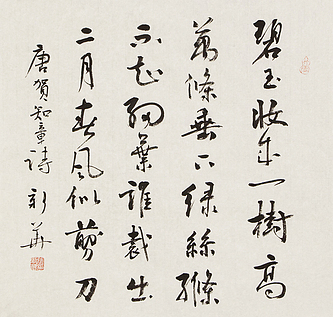 碧玉妝成一樹高
萬條垂下綠絲絛
不知細葉誰裁出
二月春風似剪刀
唐賀知章詩 新華